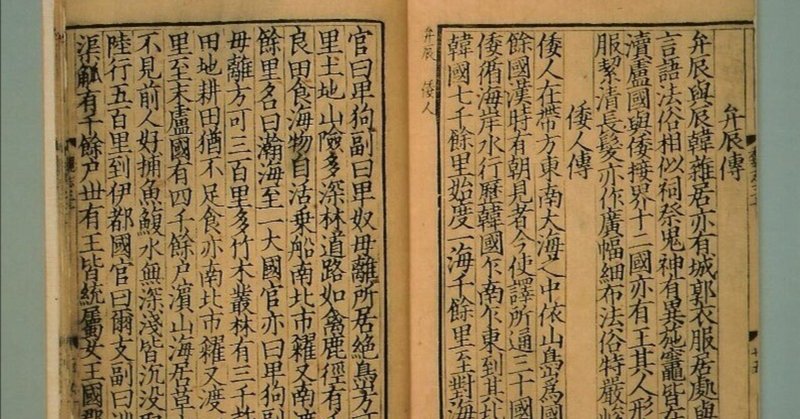 弁辰傳
弁辰與辰韓雜居亦有城郭衣服居處與
言語法俗相似祠祭鬼神有異施竈皆在
瀆盧國與倭接界十二國亦有王其人形
服絜清長髮亦作廣幅細布法俗特嚴峻
倭人傳
倭人在帶方東南大海之中依山㠀爲國
餘國漢時有朝見者今使譯所通三十國
倭循海岸水行歷韓國乍南乍東到其北
韓國七千餘里始度一海千餘里至對海
弁辰 倭人
官曰卑狗副曰卑奴毋離所居絶㠀方可
里土地山險多深林道路如禽鹿徑有
良田食海物自活乗船南北市糴又南渡
餘里名曰瀚海至一大國官亦曰卑狗副
毋離方可三百里多竹木叢林有三千許
田地耕田猶不足食亦南北市糴又渡
里至末盧國有四千餘户濱山海居草
不見前人好捕魚鰒水無深淺皆沉没取
陸行五百里到伊都國官曰爾支副曰泄
渠觚有千餘户丗有王皆統屬女王國郡